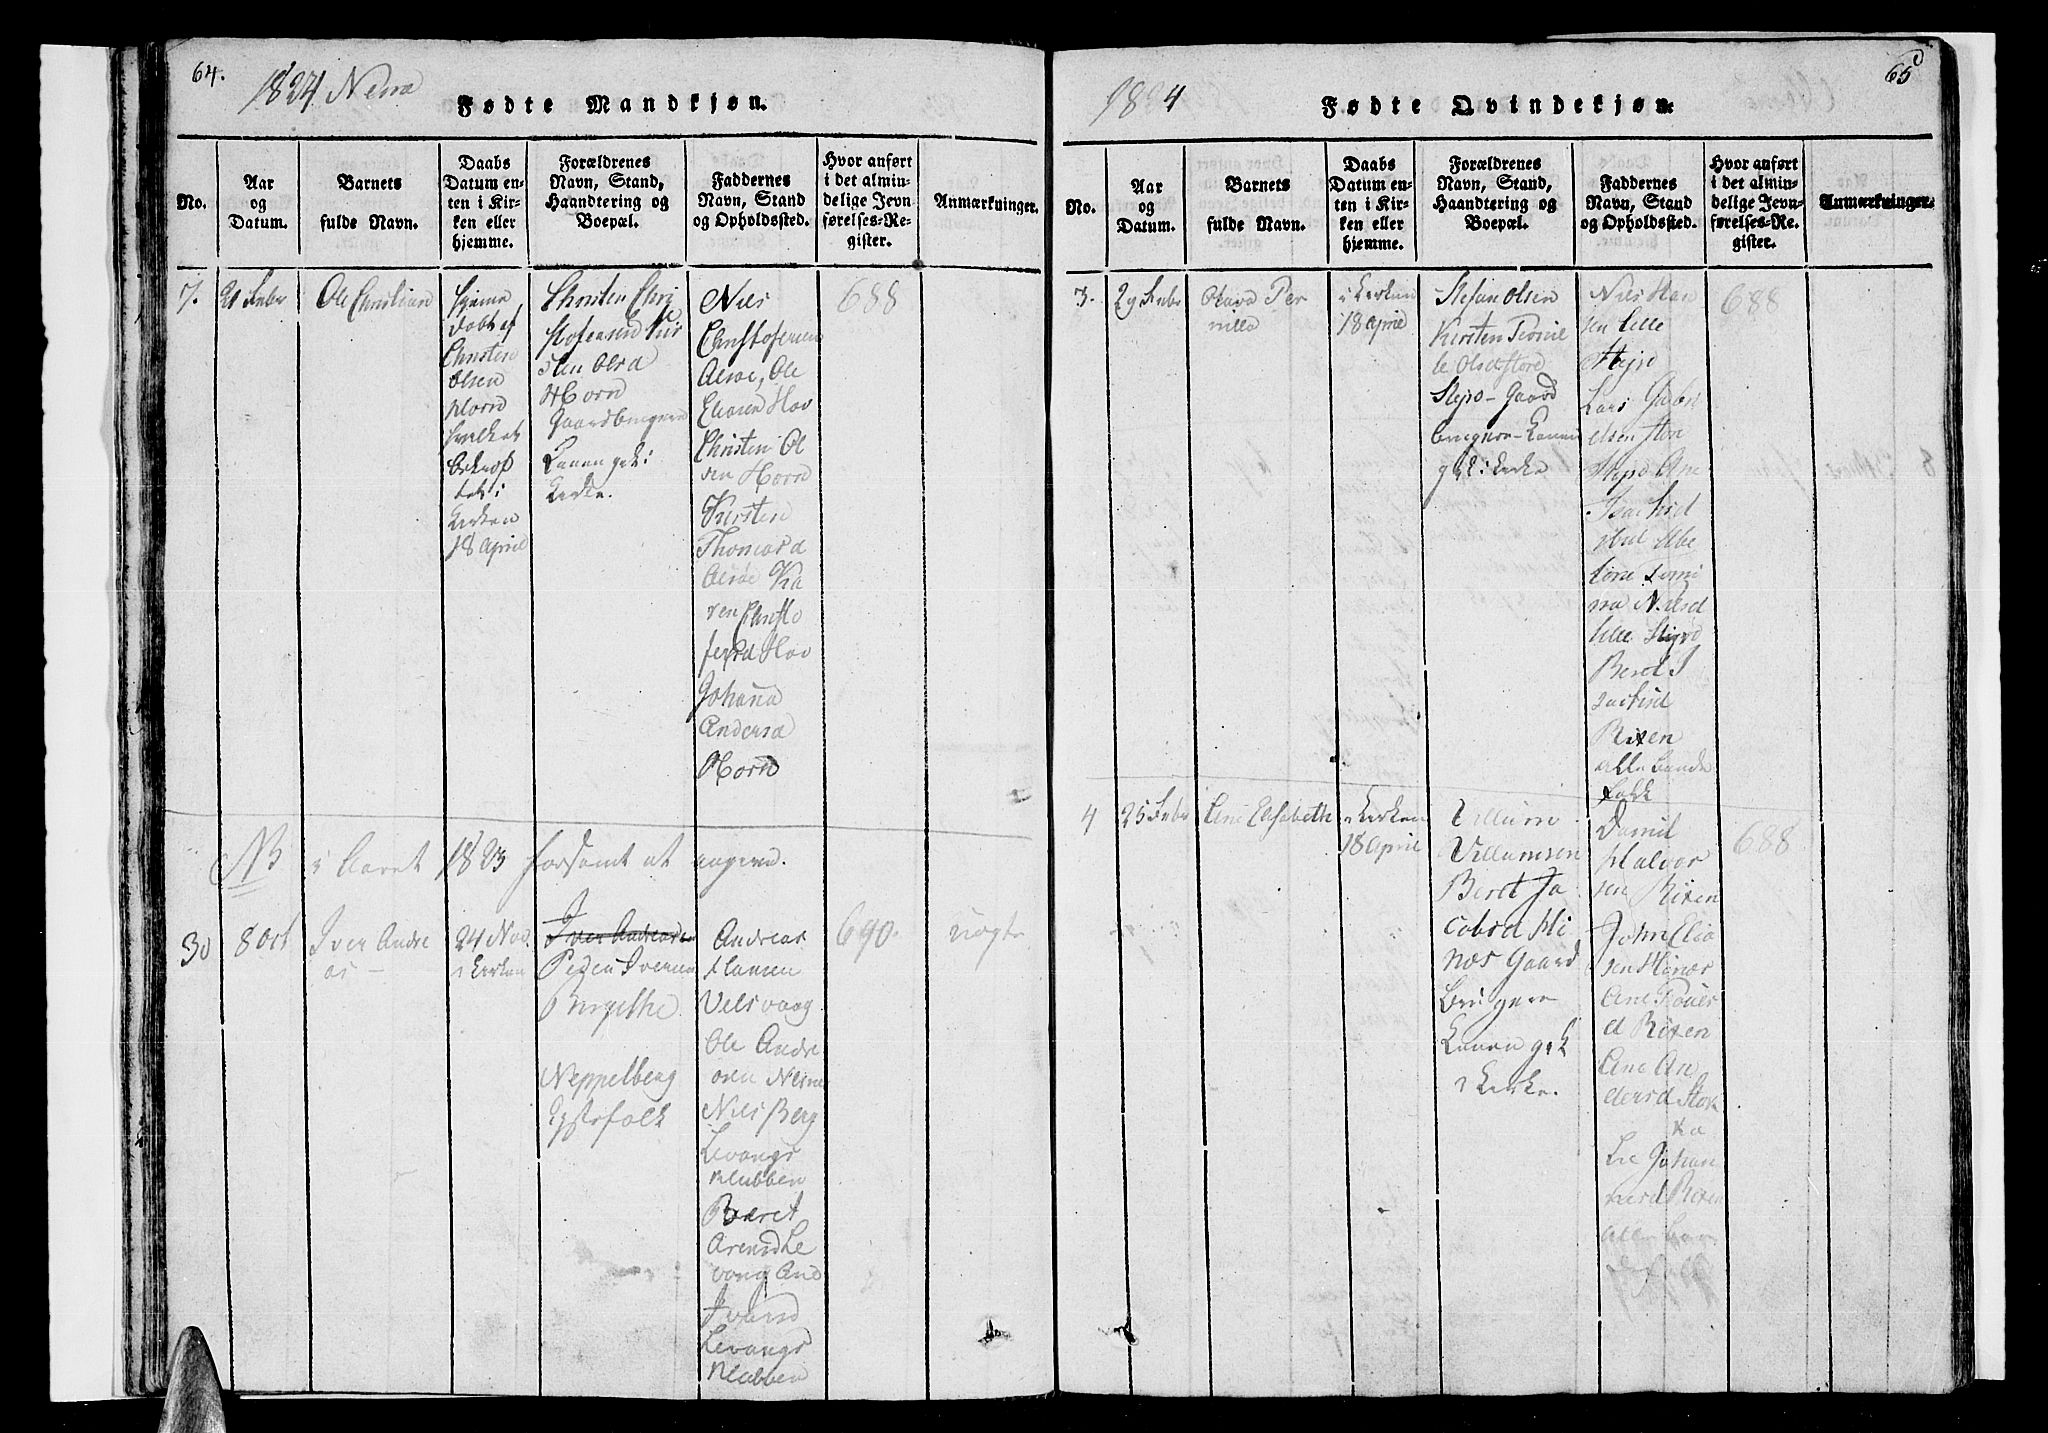 64.
1824 Nesna
Fødte Mandkjøn.
No.
Aar
og
Datum.
Barnets
fulde Navn.
Daabs
Datum en-
ten i Kir-
ken eller
hjemme.
Forældrenes
Navn, Stand,
Haandtering og
Boepæl.
Faddernes
Navn, Stand
og Opholdssted.
Hvor anført
i det almin-
delige Jevn-
førelses-Re-
gister.
Anmærkninger.
7.
21 Febr
Ole Christian
hjeme
døbt af
Christen
Olsen
Horn
hvilket
bekræf
tet i
Kirken
18 April
Christen Chri
stofersen Kir
sten Olsd
Horn
Gaardbrugere
Konen gik i
Kirke.
Niels
Christofersen
Alsøe, Ole
Eliasen Hov
Christen Ol
sen Horn
Kirsten
Thomasd
Alsøe Ka
ren Christo
fersd Hov
Johana
Andersd
Horn
688
NB i Aaret 1823 forsømt at angives.
30
8 Oct
Iver Andre
as
24 Nov.
i Kirken
Iver Andreasen
Peder Iversen
Birgethe
Neppelberg
Andreas
Hansen
Velsvaag
Ole Andre
asen Nesne
Niels Berg
Levangs
Klubben
Beret
Arensd Le
vang And
Iversd
Levangs
Klubben
690.
uægte
65
1824
Fødte Qvindekjøn.
No.
Aar
og
Datum.
Barnets
fulde Navn.
Daabs
Datum en-
ten i Kir-
ken eller
hjemme.
Forældrenes
Navn, Stand,
Haandtering og
Boepæl.
Faddernes
Navn, Stand
og Opholdssted.
Hvor anført
i det almin-
delige Jevn-
førelses-Re-
gister.
Anmærkninger.
3.
29 Febr
Olava Per
nille
i Kirken
18 April
Stefan Olsen
Kirsten Pernil
le Olsd Store
Gaard
bruger - Konen
gik i Kirke
Niels Han
sen Lille
Lars Gabri
elsen Store
Ane
Isachsd
Niels d
Lille
Beret I
sachsd
Rixen
alle bonde
folk
688
4
25 Febr
Ane Elisabeth
i Kirken
18 April
Villum
Villumsen
Beret Ja
cobsd Hi
næs Gaard
Brugere
Konen gik
i Kirke.
Daniel
Halvor
sen Rixen
John Elia
sen Hinæs
Ane Povels
d Rixen
Ane An
dersd
Johan
nesd Rixen
688